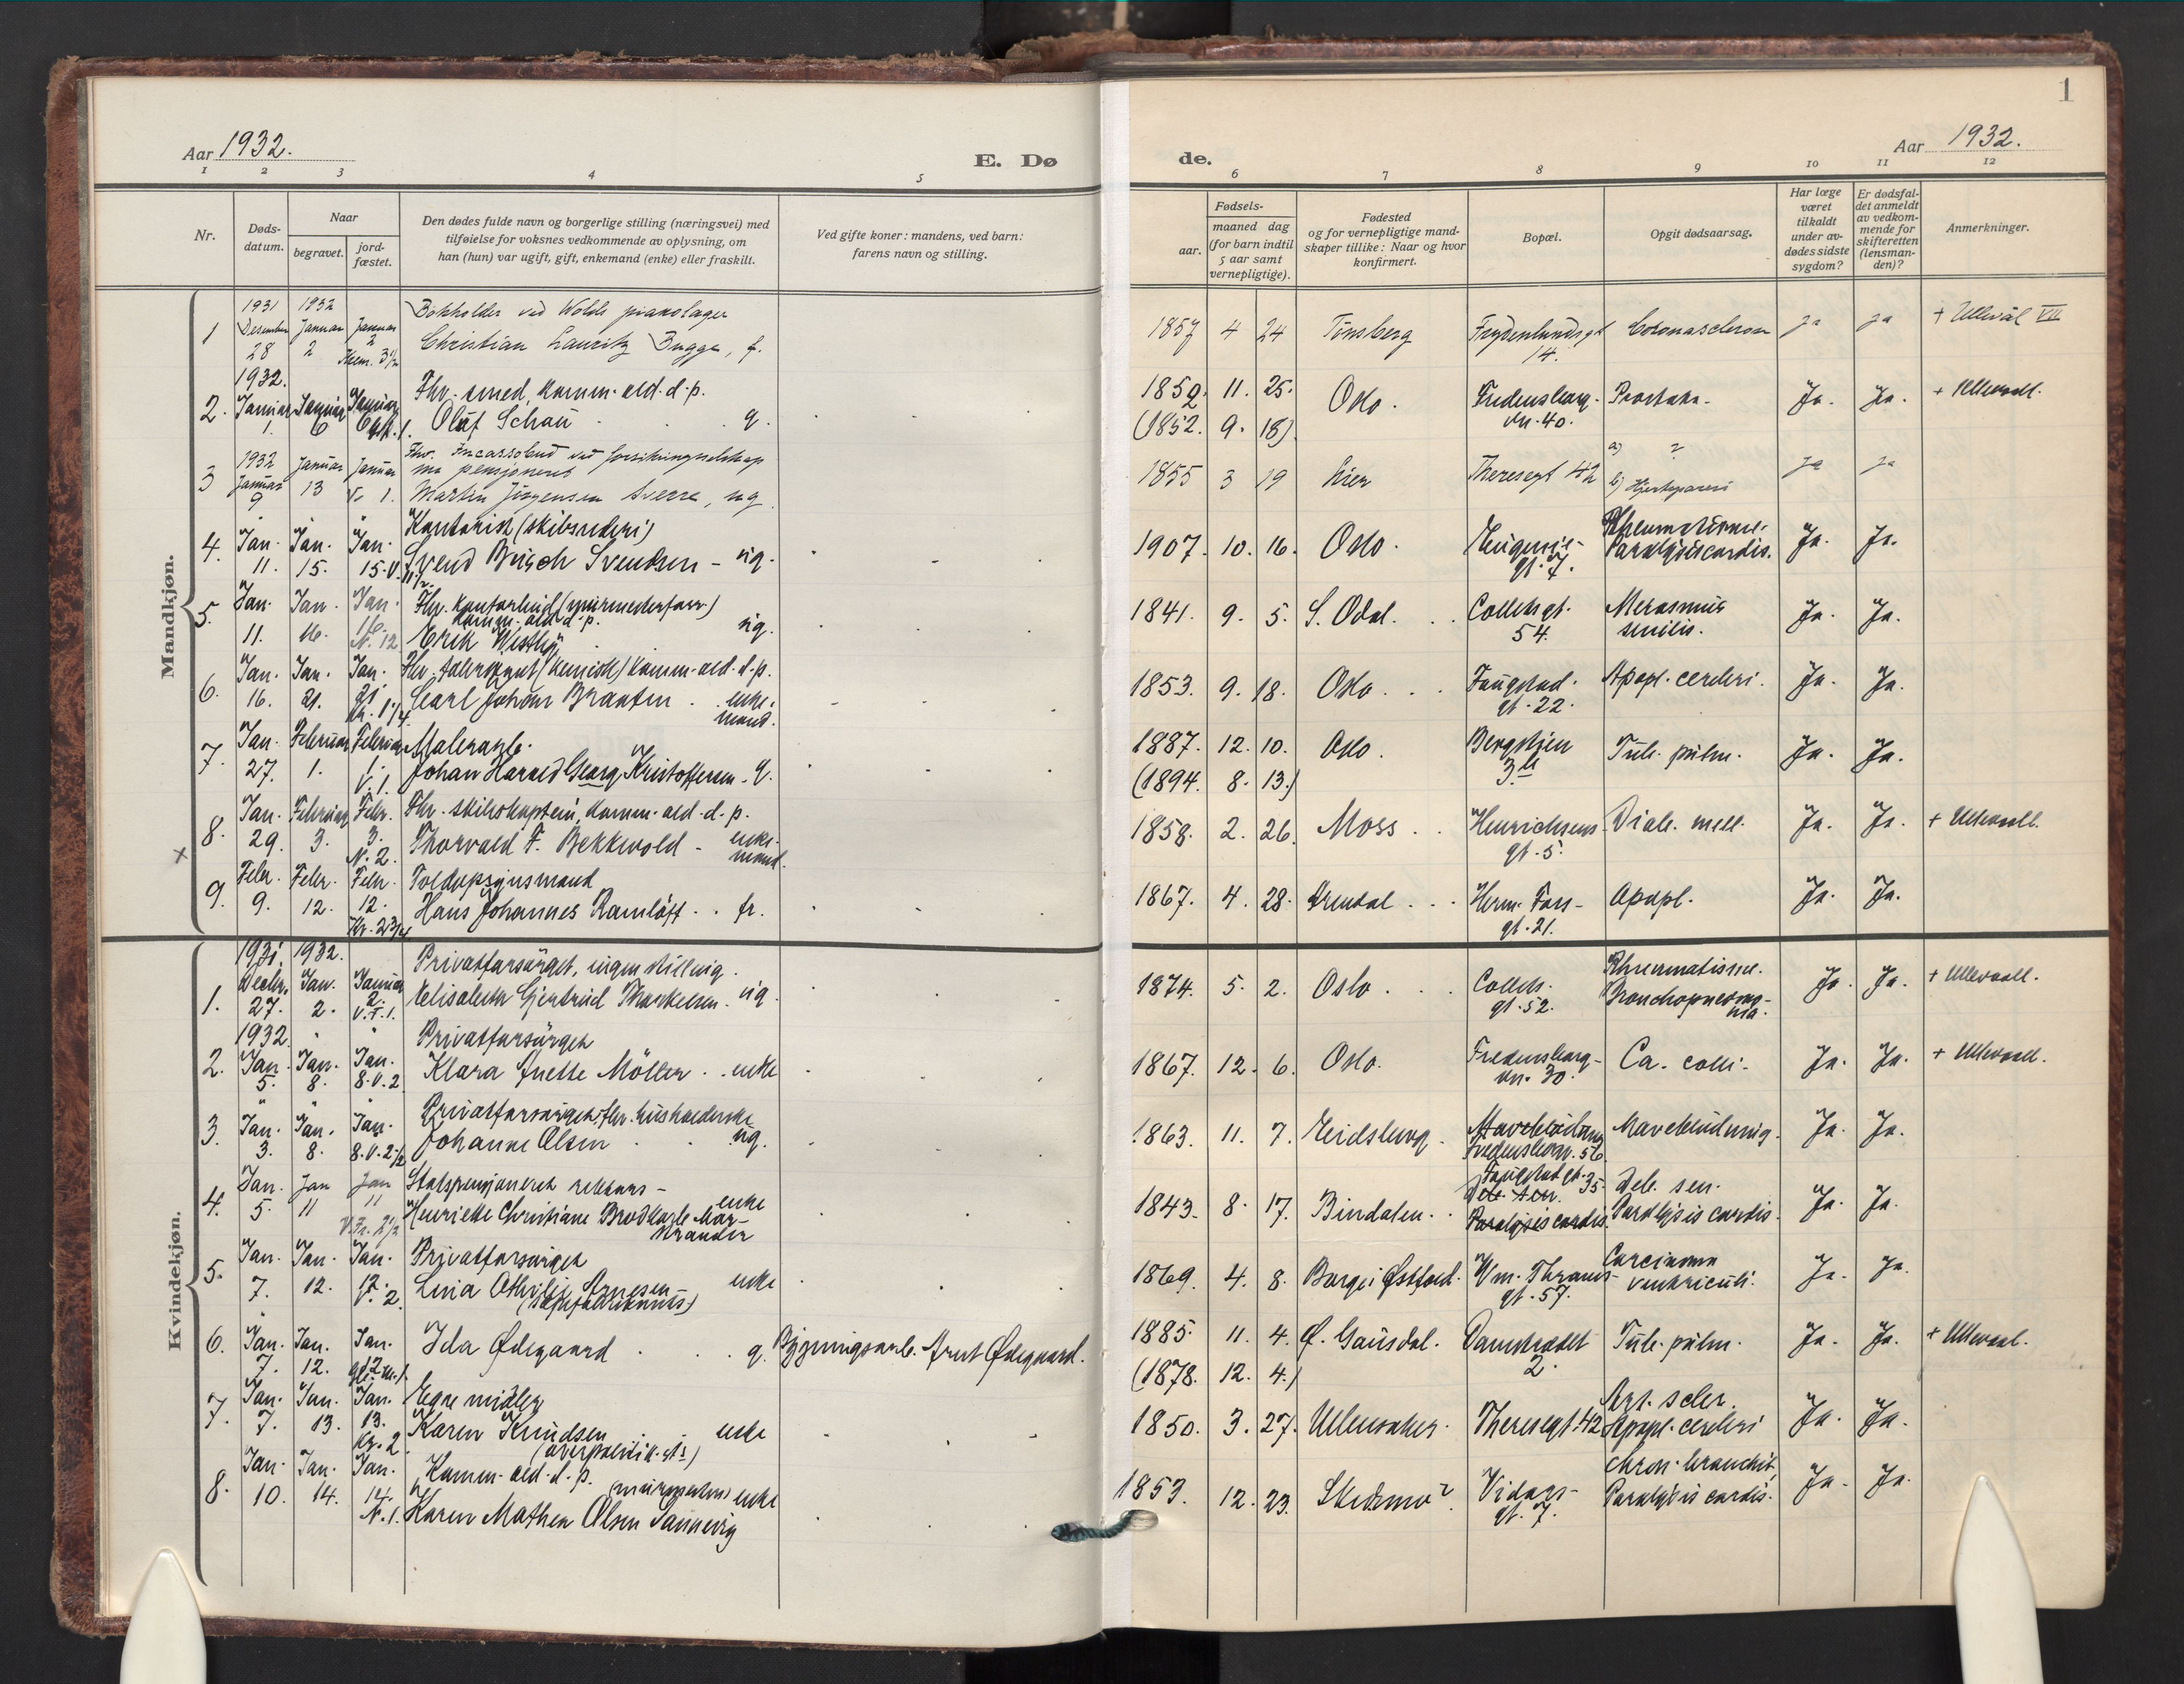 1
Aar 1932.
E. Dø
de.
Aar 1932.
1 2 3 4 5
6 7 8 9 10 11 12
Nr.
Døds-
datum.
Naar
begravet.
jord-
fæstet.
Den dødes fulde navn og borgerlige stilling (næringsvei) med
tilføielse for voksnes vedkommende av oplysning, om
han (hun) var ugift, gift, enkemand (enke) eller fraskilt.
Ved gifte koner: mandens, ved barn:
farens navn og stilling.
Fødsels-
aar.
maaned dag
(for barn indtil
5 aar samt
vernepligtige).
Fødested
og for vernepligtige mand-
skaper tillike: Naar og hvor
konfirmert.
Bopæl.
Opgit dødsaarsag.
Har læge
været
tilkaldt
under av-
dødes sidste
sygdom?
Er dødsfal-
det anmeldt
av vedkom-
mende for
skifteretten
(lensman-
den)?
Anmerkninger.
Mandkjøn.
1 1931 Desember 28 1932 Januar 2 Januar 2
Bokholder ved Wolds pianolager
Christian Lauritz Bugge, f.
1857 4 24 Tönsberg Frydenlundsgt 14. ja ja + Ullevål VII
2. 1932. Januar 1. Januar 6 Januar
Fhv. smed, komm. ald. d. p.
Oluf Schau g.
1859. 11. 25. Oslo. Fredensborg- vn. 40. Ja. Ja. + Ullevaal.
(1852. 9. 18)
3 1932 Januar 9 Januar 13 Januar V. 1.
Martin Jörgensen Sverre, ug.
1855 3 19 Lier Theresegt 42 a) ? b) Hjerteparese ja ja
4. Jan. 11. Jan. 15. Jan. 15.
Kontorist (skibsrederi)
Svend Svendsen - ug.
1907. 10. 16. Oslo. Eugenie- gt. 7. Paralysis cordis. Ja. Ja.
5. Jan. 11. Jan. 16. Jan. 16. N. 12
komm. ald. d. p.
Erik ug.
1841. 9. 5. S. Odal. Colletsgt. 54. senilis. Ja. Ja.
6. Jan. 16. Jan. 21. Jan. 21
komm. ald. d. p.
Carl Johan Braaten enke- mand.
1853. 9. 18. Oslo. gt. 22. Apopl. cerebri. Ja. Ja.
7. Jan. 27. Februar 1. Februar 1. V. 1.
Malerarb.
Johan Harald Georg Kristoffersen - g.
1887. 12. 10. Oslo. Bergstien Tub. pulm. Ja. Ja.
(1894. 8. 13.)
8. Jan. 29. Februar 3. Febr. 3. N. 2.
Fhv. skibskaptein, komm. ald. d. p.
Thorvald F. Bekkevold - enke- mand.
1858. 2. 26. Moss Henrichsens gt. 5. Diab. mell. Ja. Ja. + Ullevaall.
×
9. Febr. 9. Febr. 12. Febr. 12. Kr. 2 3/4
Toldopsynsmand
Hans Johannes Ramlöff fr.
1867. 4. 28. Arendal Herm. Foss- gt. 21. Apopl. Ja. Ja.
Kvindekjøn.
1. 1931. Decbr. 27. 1932. Jan. 2. Januar 2.
Privatforsörget, ingen stilling.
Elisabeth Gjertrud Thorkelsen ug.
1874. 5. 2. Oslo Collets- gt. 52. Bronchopneumo- nia. Ja. Ja. + Ullevaall.
2. 1932. Jan. 5. Jan. 8. Jan. 8. V. 2
Privatforsörget
Klara Anette Möller enke
1867. 12. 6. Oslo. Fredensborg- vn. 30. Ca. colli. Ja. Ja. + Ullevaall.
3. Jan. 3. Jan. 8. Jan. 8. V. 2 1/2
Privatforsörget, fhv. husholderske
Johanne Olsen ug.
1863. 11. 7. Eidsberg Fredensborgv. 56. Maveblödning. Ja. Ja.
4. Jan. 5. Jan 11 Jan 11
Henriette Christiane enke
1843. 8. 17. Bindalen Paralysis cordis. Deb. sen. Paralysis cordis. Ja. Ja.
5. Jan. 7. Jan. 12. Jan. 12. V. 2.
Privatforsörget
Lina Othilie Arnesen enke
1869. 4. 8. Borge i Østfold. Vm. Thranes- gt. 57. Carcinoma ventriculi. Ja. Ja.
6. Jan. 7. Jan. 12. Jan. 12
Ida Ødegaard g. Bygningsarb. Arnt Ødegaard.
1885. 11. 4. Ø. Gausdal. Damstrædet 2. Tub. pulm. Ja. Ja. + Ullevaal.
(1878. 12. 4.)
7. Jan. 7. Jan. 13. Jan. 13. Kr. 2
Egne midler
Karen Knudsen enke
1850. 3. 27. Ullensaker. Theresegt. 42 Art. scler. Apopl. cerebri Ja. Ja.
8. Jan. 10. Jan. 14. Jan. 14. N. 1.
Komm. ald. d. p. enke
Karen Mathea Olsen Sannerig
1853. 12. 23. Skedsmo Vidars- gt. 7. chron. bronchit. Paralysis cordis. Ja. Ja.